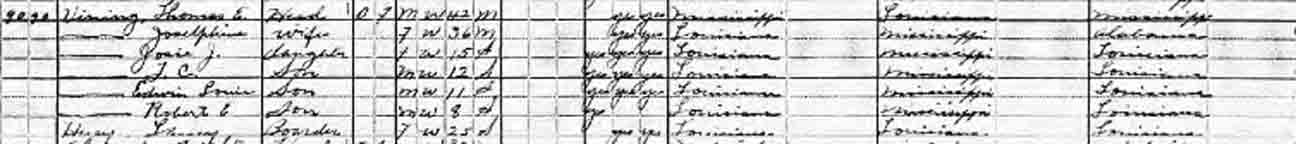 20 20 Vining, Thomas E. Head O F M W 42 M yes yes Mississippi Louisiana Mississippi
Josephine Wife F W 36 M yes yes Louisiana Mississippi Alabama
Josie J. Daughter F W 15 S yes yes yes Louisiana Mississippi Louisiana
J. C. Son M W 12 S yes yes yes Louisiana Mississippi Louisiana
Edwin Son M W 11 S yes yes yes Louisiana Mississippi Louisiana
Robert E Son M W 8 S yes Louisiana Mississippi Louisiana
Boarder F W 25 S yes yes Louisiana Louisiana Louisiana